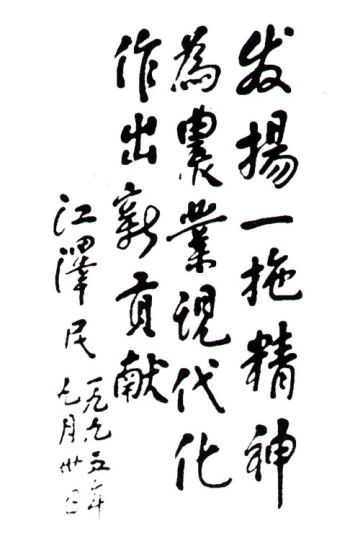 发揚一拖精神
為農業現代化
作出新貢献
江澤民
一九九五年
七月卅日